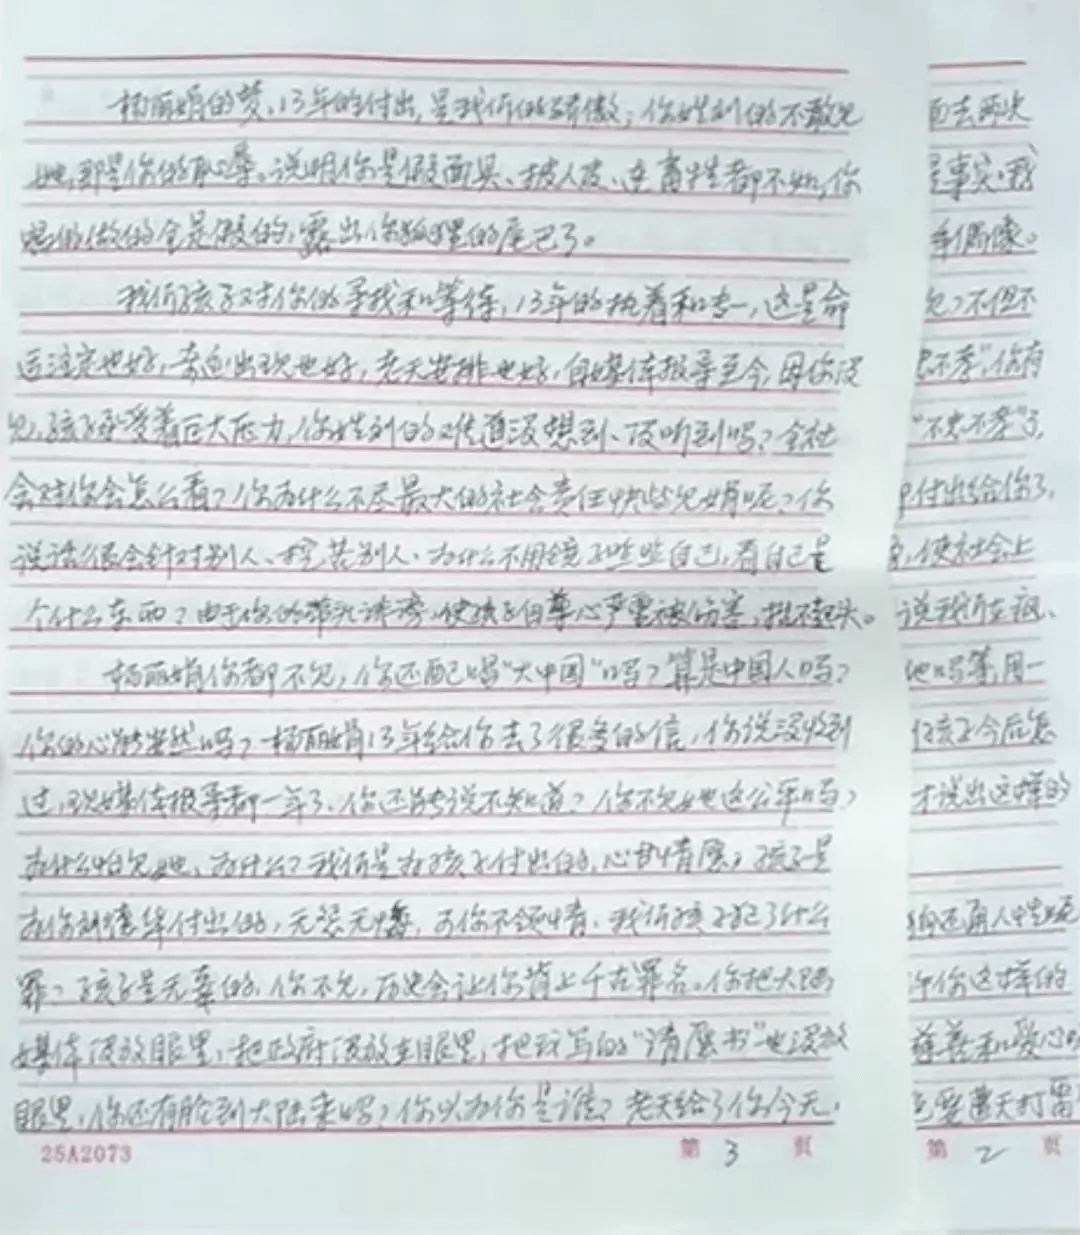 杨丽娟的梦、13年的付出,是我们的骄傲,你姓刘的不敢见
她,那是你的耻辱。说明你是假面具、披人皮、连畜牲都不如,你
的做的全是假的,露出你狐狸的尾巴了。
我们孩子对你的寻找和等待,13年的执着和忠一,这是命
运注定也好,老天安排也好,自媒体报导至今,因你没
见,孩子承受着巨大压力,你姓刘的难道没想到、没听到吗?全社
会对你会怎么看?你为什么不尽最大的社会责任快些见娟呢?你
说话很会针对别人、挖苦别人、为什么不用镜子照照自己,看自己是
个什么东西?由于你的诽谤,使孩子自尊心严重被伤害,抬不起头。
杨丽娟你都不见,你还配唱“大中国”吗?算是中国人吗?
你的心能安然吗?杨丽娟13年给你去了很多的信,你说没收到
过,现媒体报导都一年了、你还能说不知道?你不见她这公平吗?
为什么怕见她,为什么?我们是为孩子付出的,心甘情愿,孩子是
为你刘德华付出的,无怨无悔,可你不领情、我们孩子犯了什么
罪?孩子是无辜的、你不见,历史会让你背上千古罪名。你把大陆
媒体没放眼里,把政府没放在眼里,把我写的“请愿书”也没放
眼里,你还有脸到大陆来吗?你以为你是谁?老天给了你今天,
25A2073
第 3 页
面去两次
是事实。我
年偶像。
见?不但不
忠不孝”,你有
“不忠不孝”了,
付出给你了,
,使社会上
说我们在疯、
他吗等,用一
孩子今后怎
才说出这样的
还有人性呢
你这样的
慈善和爱心
要遭天打雷
第 2 页